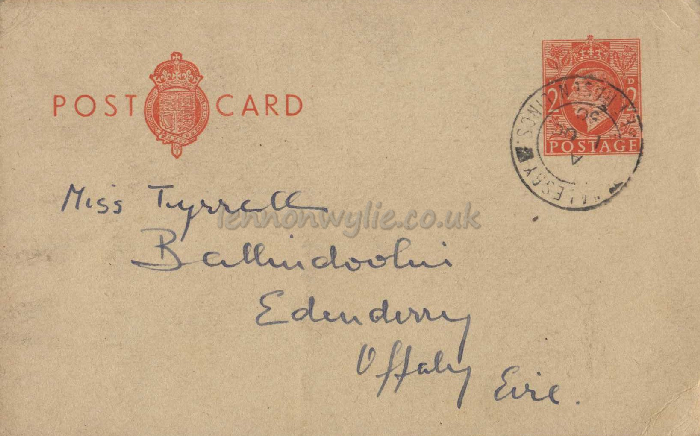 POST CARD
2 D 2
POSTAGE
Miss Tyrrell
lennonwylie.co.uk
Ballindoolin
Edenderry
Offaly Eire.